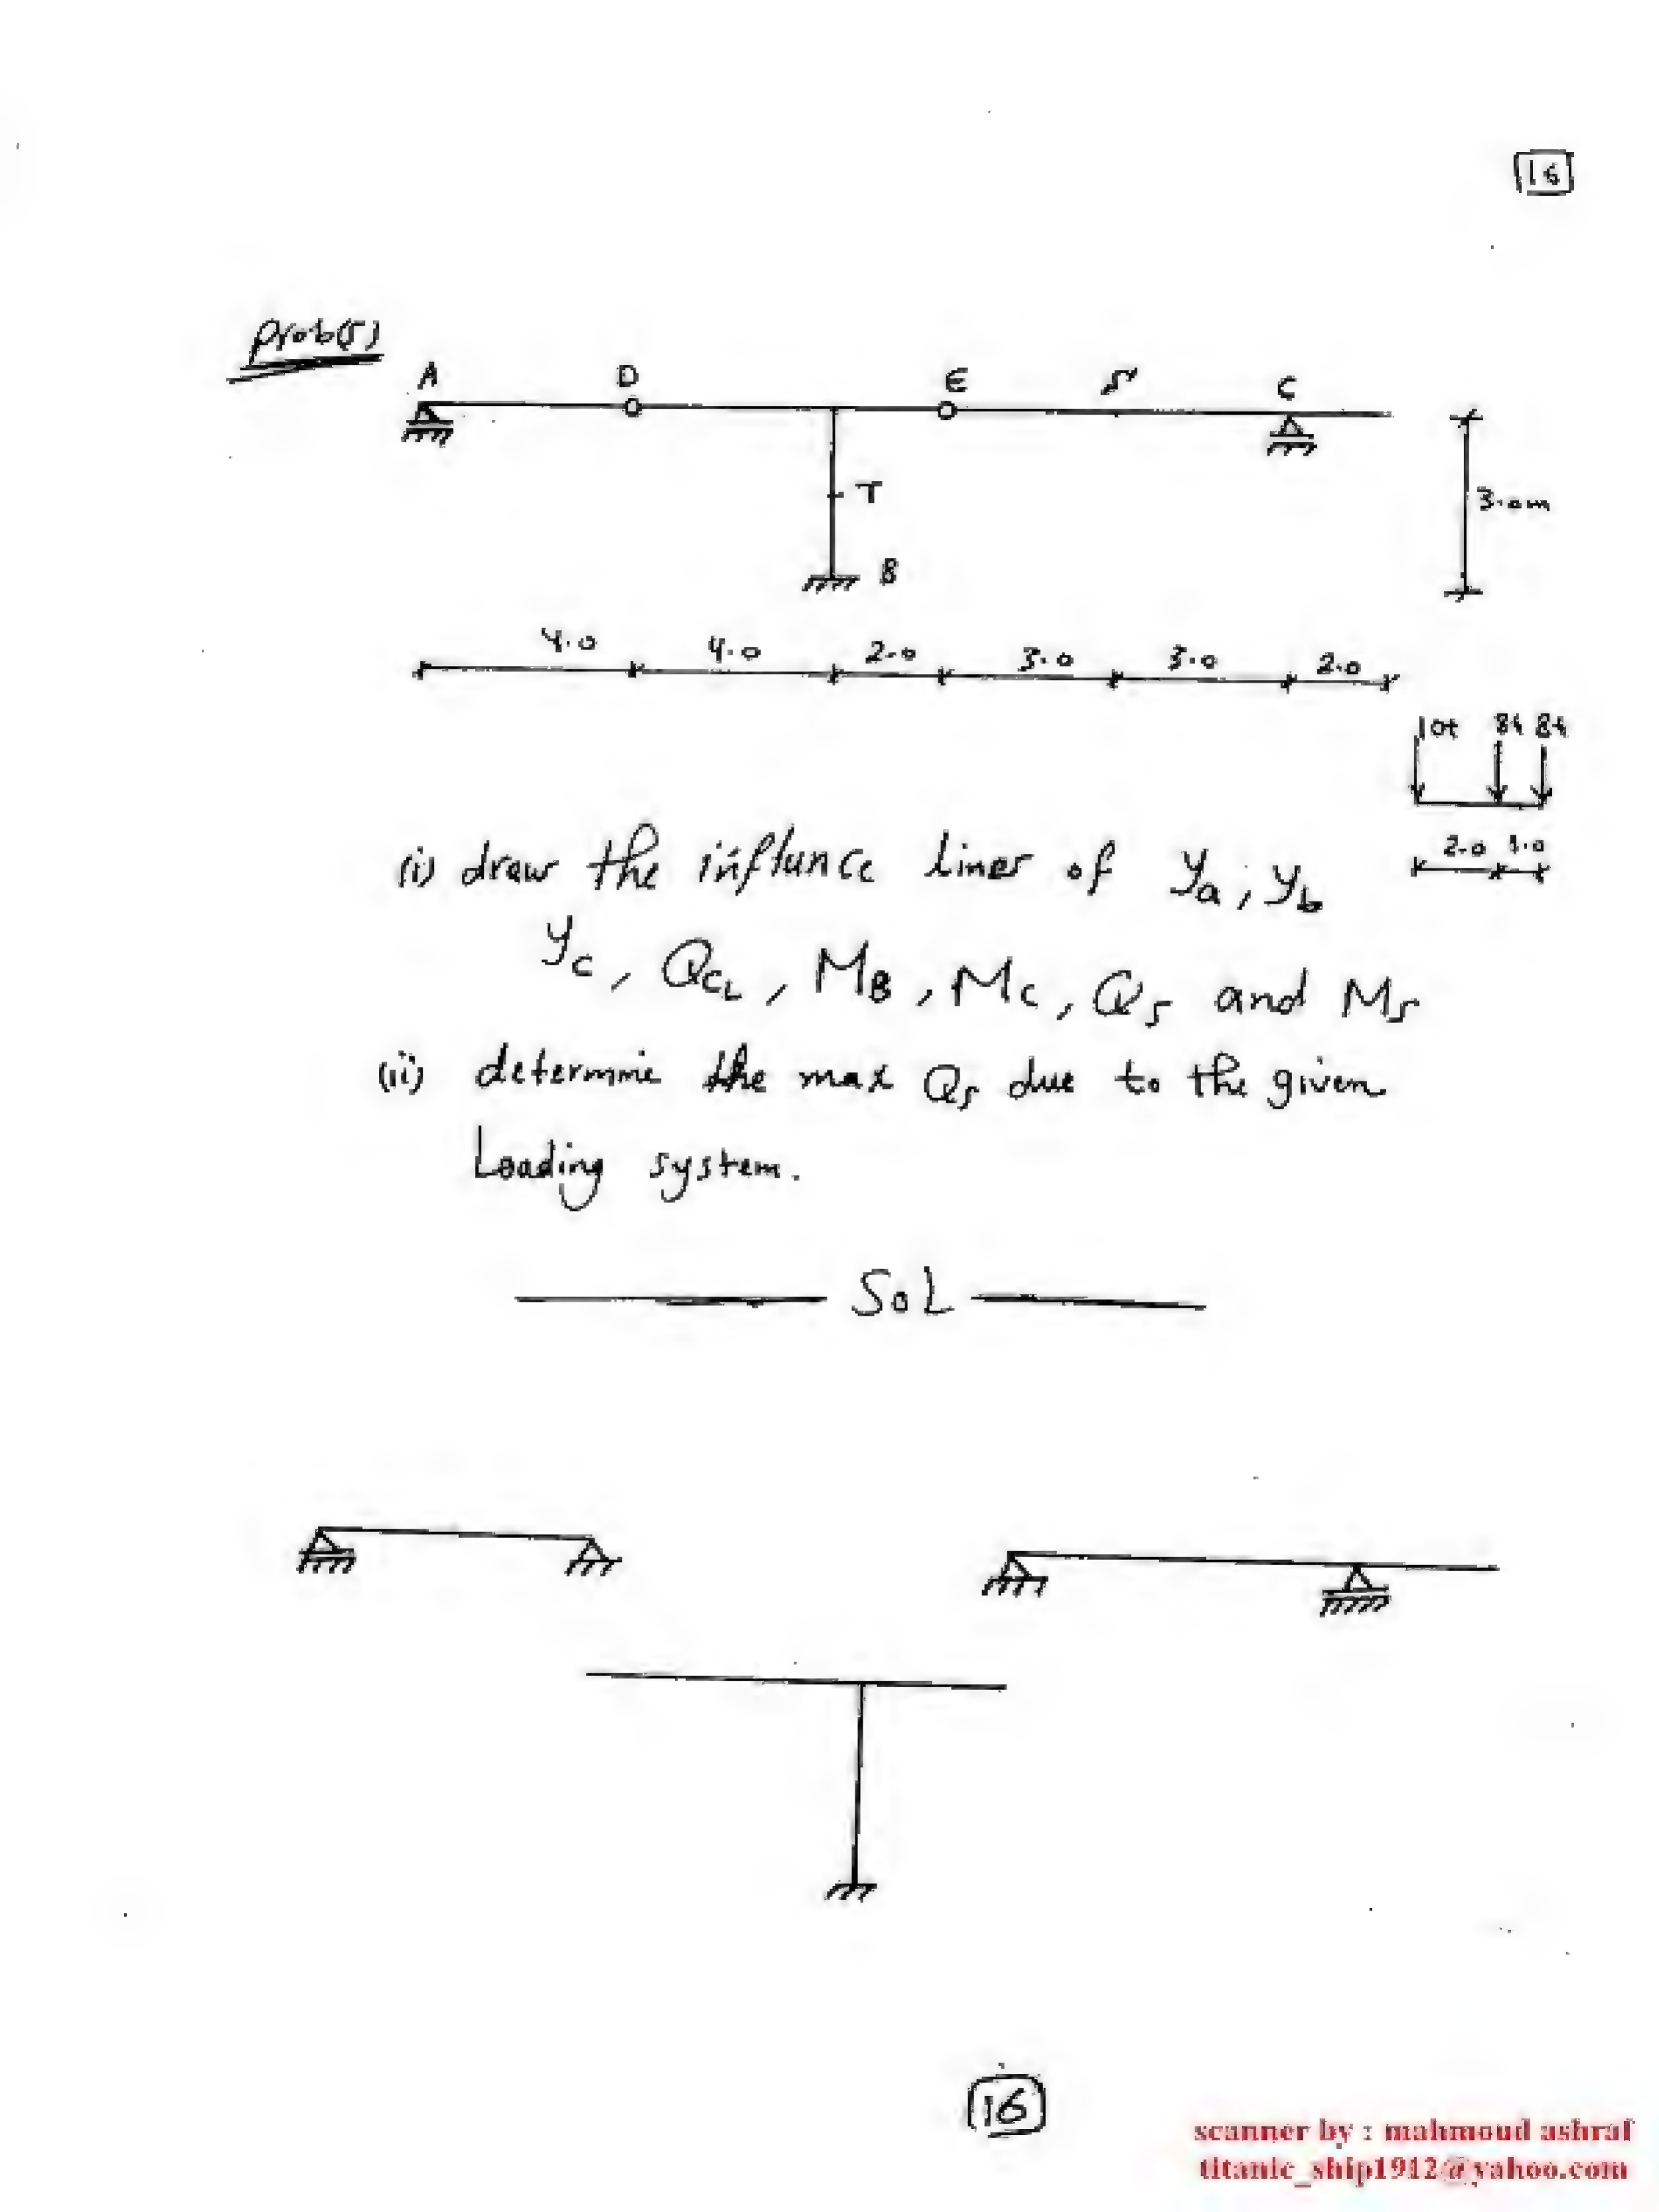 16
prob(5)
A D E S C
T
3.0m
B
4.0 4.0 2.0 3.0 3.0 2.0
10t 8t 8t
2.0 1.0
(i) draw the influnce lines of Ya, Yb
Yc, QCL, MB, Mc, Qs and Ms
(ii) determine the max Qs due to the given
Loading system.
SoL
16
scanner by : mahmoud ashraf
titanic_ship1912@yahoo.com